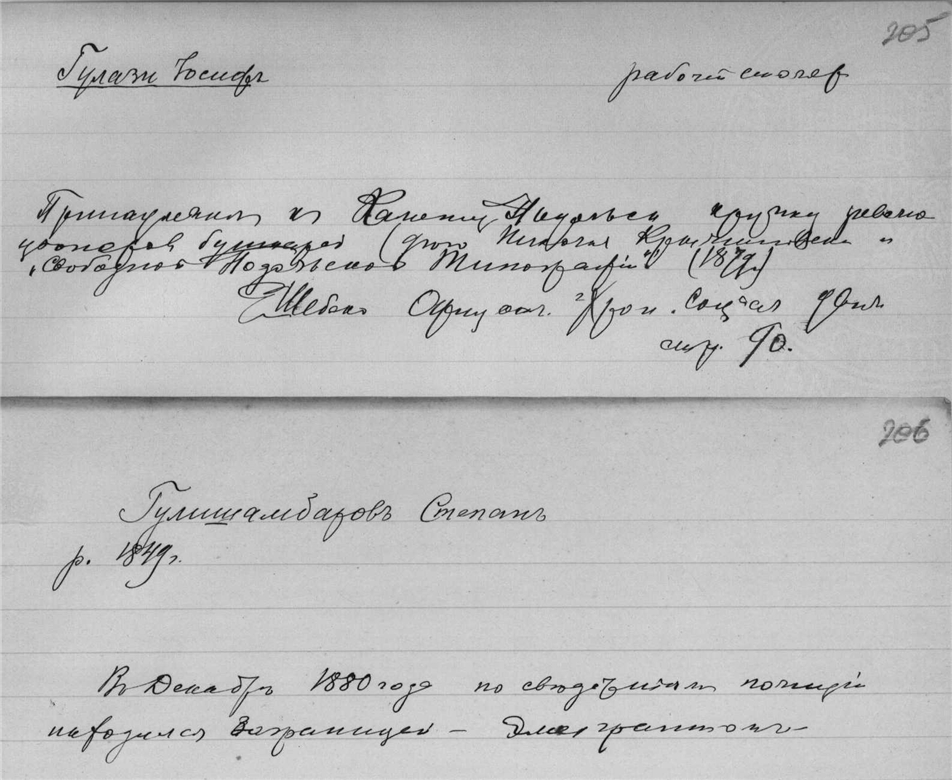 205
Гулази Іосифъ рабочій столяр
Принадлежал к Каменец Подольск кружку револю
ціонеров бунтарей (дело Николая и
"Свободной Подольской Типографіи" (1879)
Шебеко Хрон. Социал движ
стр. 90.
206
Гулишамбаровъ Степанъ
р. 1849г.
Въ Декабрѣ 1880 года по сведѣніям полиціи
находился Заграницей – Эмигрантомъ